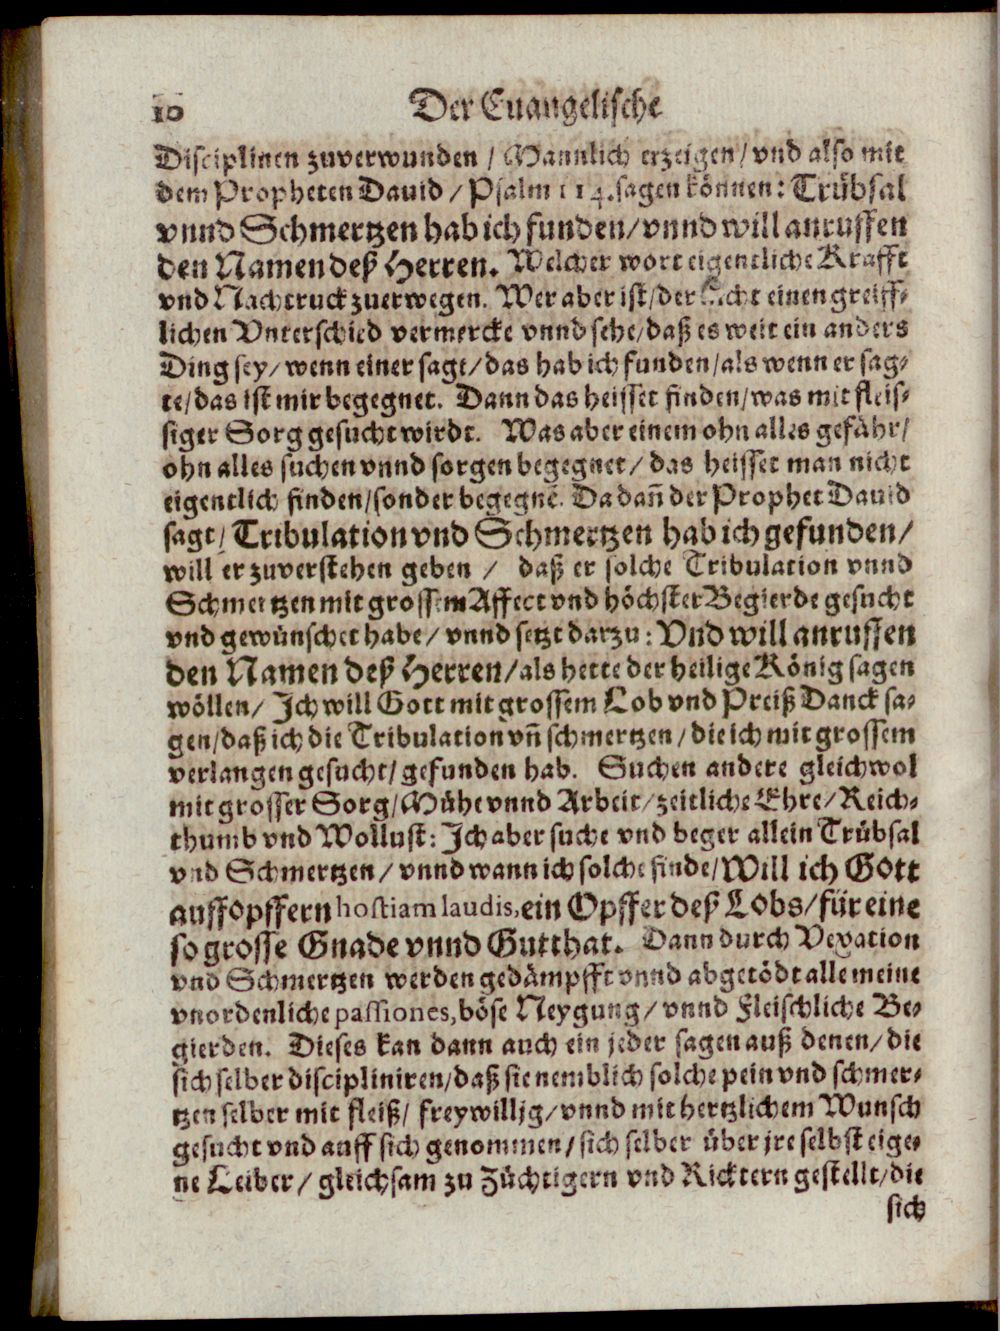 10 Der Euangelische
Disciplinen zuverwunden / Mannlich erzeigen / vnd also mit
dem Propheten Dauid / Psalm 114. sagen können: Trübsal
vnnd Schmertzen hab ich funden / vnnd will anruffen
den Namen deß Herren. Welcher wort eigentliche Krafft
vnd Nachtruck zuerwegen. Wer aber ist / der nicht einen greiff⸗
lichen Vnterschied vermercke vnnd sehe / daß es weit ein anders
Ding sey / wenn einer sagt / das hab ich funden / als wenn er sag⸗
te / das ist mir begegnet. Dann das heisset finden / was mit fleis⸗
siger Sorg gesucht wirdt. Was aber einem ohn alles gefähr /
ohn alles suchen vnnd sorgen begegnet / das heisset man nicht
eigentlich finden / sonder begegnē. Da dañ der Prophet Dauid
sagt / Tribulation vnd Schmertzen hab ich gefunden /
will er zuverstehen geben / daß er solche Tribulation vnnd
Schmertzen mit grossem Affect vnd höchster Begierde gesucht
vnd gewünschet habe / vnnd setzt darzu: Vnd will anruffen
den Namen deß Herren / als hette der heilige König sagen
wöllen / Ich will Gott mit grossem Lob vnd Preiß Danck sa⸗
gen / daß ich die Tribulation vñ schmertzen / die ich mit grossem
verlangen gesucht / gefunden hab. Suchen andere gleichwol
mit grosser Sorg / Mühe vnnd Arbeit / zeitliche Ehre / Reich⸗
thumb vnd Wollust: Ich aber suche vnd beger allein Trübsal
vnd Schmertzen / vnnd wann ich solche finde / Will ich Gott
auffopffern hostiam laudis, ein Opffer deß Lobs / für eine
so grosse Gnade vnnd Gutthat. Dann durch Vexation
vnd Schmertzen werden gedämpfft vnnd abgetödt alle meine
vnordenliche passiones, böse Neygung / vnnd Fleischliche Be⸗
gierden. Dieses kan dann auch ein jeder sagen auß denen / die
sich selber discipliniren / daß sie nemblich solche pein vnd schmer⸗
tzen selber mit fleiß / freywillig / vnnd mit hertzlichem Wunsch
gesucht vnd auff sich genommen / sich selber über jre selbst eige⸗
ne Leiber / gleichsam zu Züchtigern vnd Ricktern gestellt / die
sich